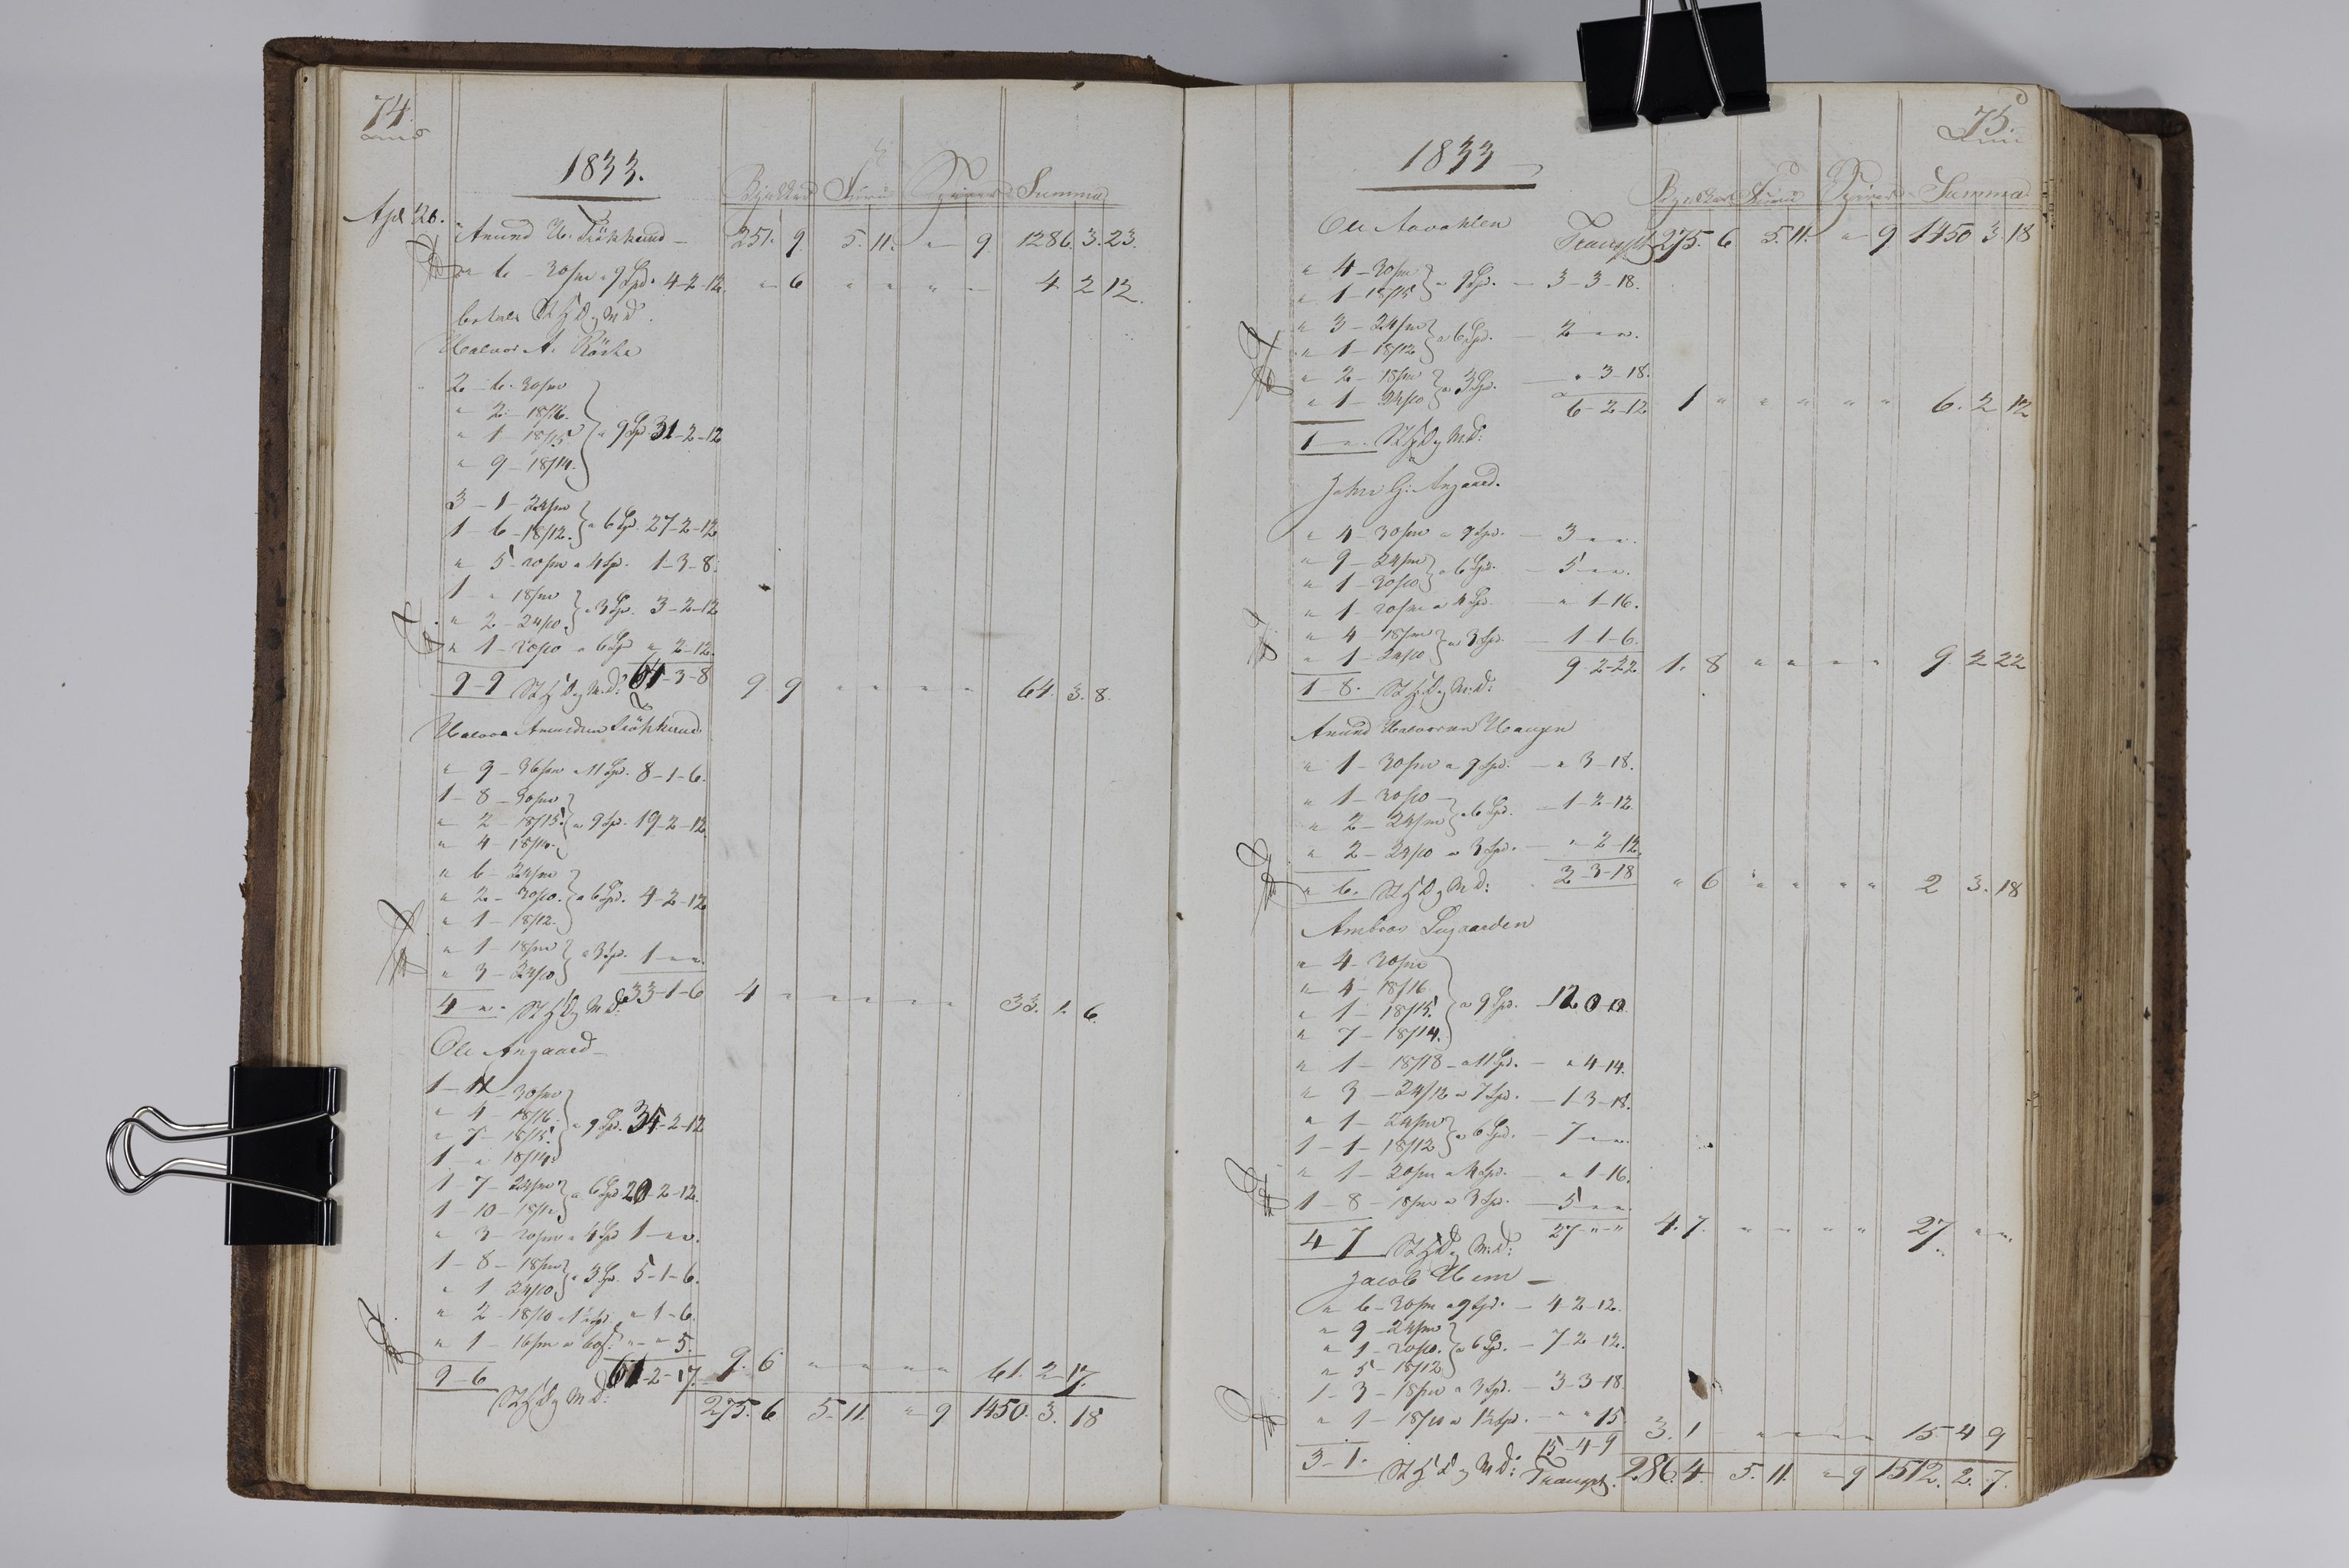 74.
1833.
Summa
Apl 20.
Anund 251. 9. 5. 11. " 9 1286. 3. 23.
" 6 - 30/m a 9 Spd. 4-2-12. " 6 " " " " 4 2 12.
betalt
Halvor A.
2 - 6 - 30/m
" 2 - 18/16.
" 1 - 18/15 a 9 Spd 31-2-12
" 9 - 18/14.
3 - 1 - 24/m
1 - 6 - 18/12. a 6 Spd. 27-2-12
" 5 - 20/m a 4 Sp. 1-3-8.
1 - " 18/m
" 2 - 24/10. a 3 Sp. 3-2-12
" 1 - 20/10 a 6 Sp " 2-12.
9-9 64-3-8 9 9 " " " " 64. 3. 8.
Halvor
" 9 - 36/m a 11 Sp. 8-1-6.
1 - 8 - 30/m
" 2 - 18/15. a 9 Sp. 19-2-12.
" 4 - 18/14.
" 6 - 24/m
" 2 - 30/10. a 6 Sp. 4-2-12
" 1 - 18/12.
" 1 - 18/m a 3 Sp. 1-"-".
" 3 - 24/10
4 - " 33-1-6 4 " " " " " 33. 1. 6.
Ole Angaard
1 - 11 - 30/m
" 4 - 18/16
" 7 - 18/15. a 9 Sp. 34-2-12
1 - " 18/14.
1 - 7 - 24/m
1 - 10 - 18/12. a 6 Spd 20-2-12.
" 3 - 20/m a 4 Spd 1-"-".
1 - 8 - 18/m
" 1 24/10 a 3 Sp. 5-1-6.
" 2 - 18/10 " 1-6.
" 1 - 16/m " - " 5.
9-6 61-2-17. 9. 6 " " " " 61. 2 17.
275. 6 5. 11. " 9 1450. 3. 18
75.
1833
Summa
Ole Aavahlen
Transpt 275. 6 5. 11. " 9. 1450 3. 18
" 4 - 30/m
" 1 - 18/15 a 9 Sp. - 3-3-18.
" 3 - 24/m
" 1 - 18/12 a 6 Spd. - 2-"-".
" 2 - 18/m
" 1 - 24/10 a 3 Sp. - " 3-18.
6-2-12 1 " " " " " 6. 2 12
1 - "
John G. Angaard.
" 4 - 30/m a 9 Spd. - 3-"-".
" 9 - 24/m
" 1 - 30/10 a 6 Sp. - 5-"-".
" 1 - 20/m a 4 Spd. - " 1-16.
" 4 - 18/m
" 1 - 24/10 a 3 Spd. - 1 1-6.
9-2-22 1. 8 " " " " 9. 2 22
1-8.
Anund Halvorsen Haugen
" 1 - 30/m a 9 Spd. - " 3-18.
" 1 - 30/10
" 2 - 24/m a 6 Spd. - 1-2-12.
" 2 - 24/10 a 3 Spd. - " 2-12.
" 6. 2-3-18 " 6 " " " " 2 3. 18
" 4 - 30/m
" 4 - 18/16
" 1 - 18/15. a 9 Spd. - 12 0 0.
" 7 - 18/14.
" 1 - 18/18 a 11 Spd. - " 4-14.
" 3 - 24/12 a 7 Spd. - 1-3-18.
" 1 - 24/m
1 - 1 - 18/12 a 6 Spd. - 7-"-".
" 1 - 20/m a 4 Spd. - " 1-16.
1 - 8 - 18/m a 3 Spd. - 5-"-".
4 7 27-"-" 4. 7. " " " " 27 " ".
Jacob
" 6 - 30/m a 9 Spd. - 4-2-12.
" 9 - 24/m
" 1 - 30/10. a 6 Spd. - 7-2-12.
" 5 - 18/12
1 - 3 - 18/m a 3 Spd. - 3-3-18.
" 1 - 18/10 a 1½ Spd. - " " 15
15-4-9 3. 1 " " " " 15 4 9
3-1. Transpt. 286. 4 5. 11. " 9 1512. 2. 7.